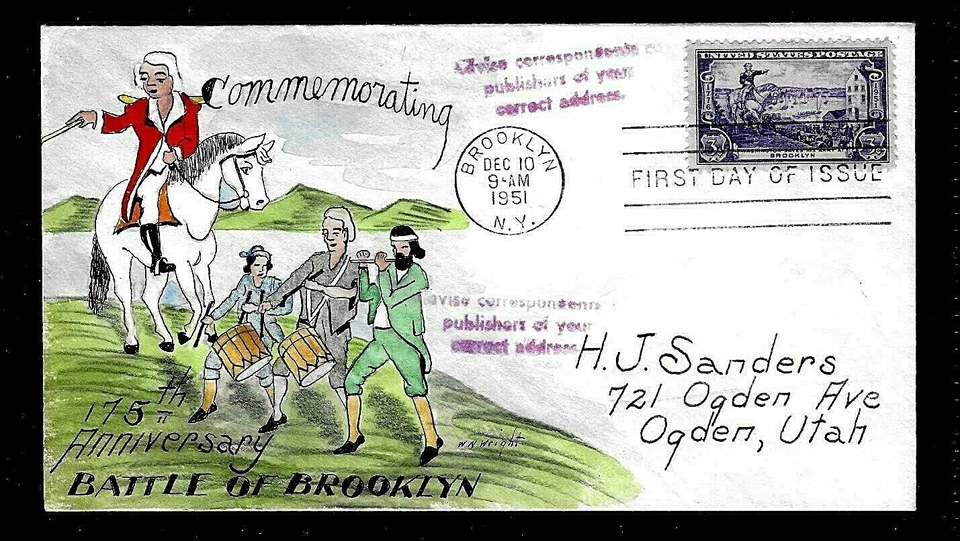 Commemorating
Advise correspondents
publishers of your
correct address.
UNITED STATES POSTAGE
1776
1951
3¢
3¢
BROOKLYN
BROOKLYN
DEC 10
9-AM
1951
N.Y.
FIRST DAY OF ISSUE
advise correspondents
publishers of your
correct address
H. J. Sanders
721 Ogden Ave
Ogden, Utah
175th
Anniversary
BATTLE OF BROOKLYN
W.N. Wright